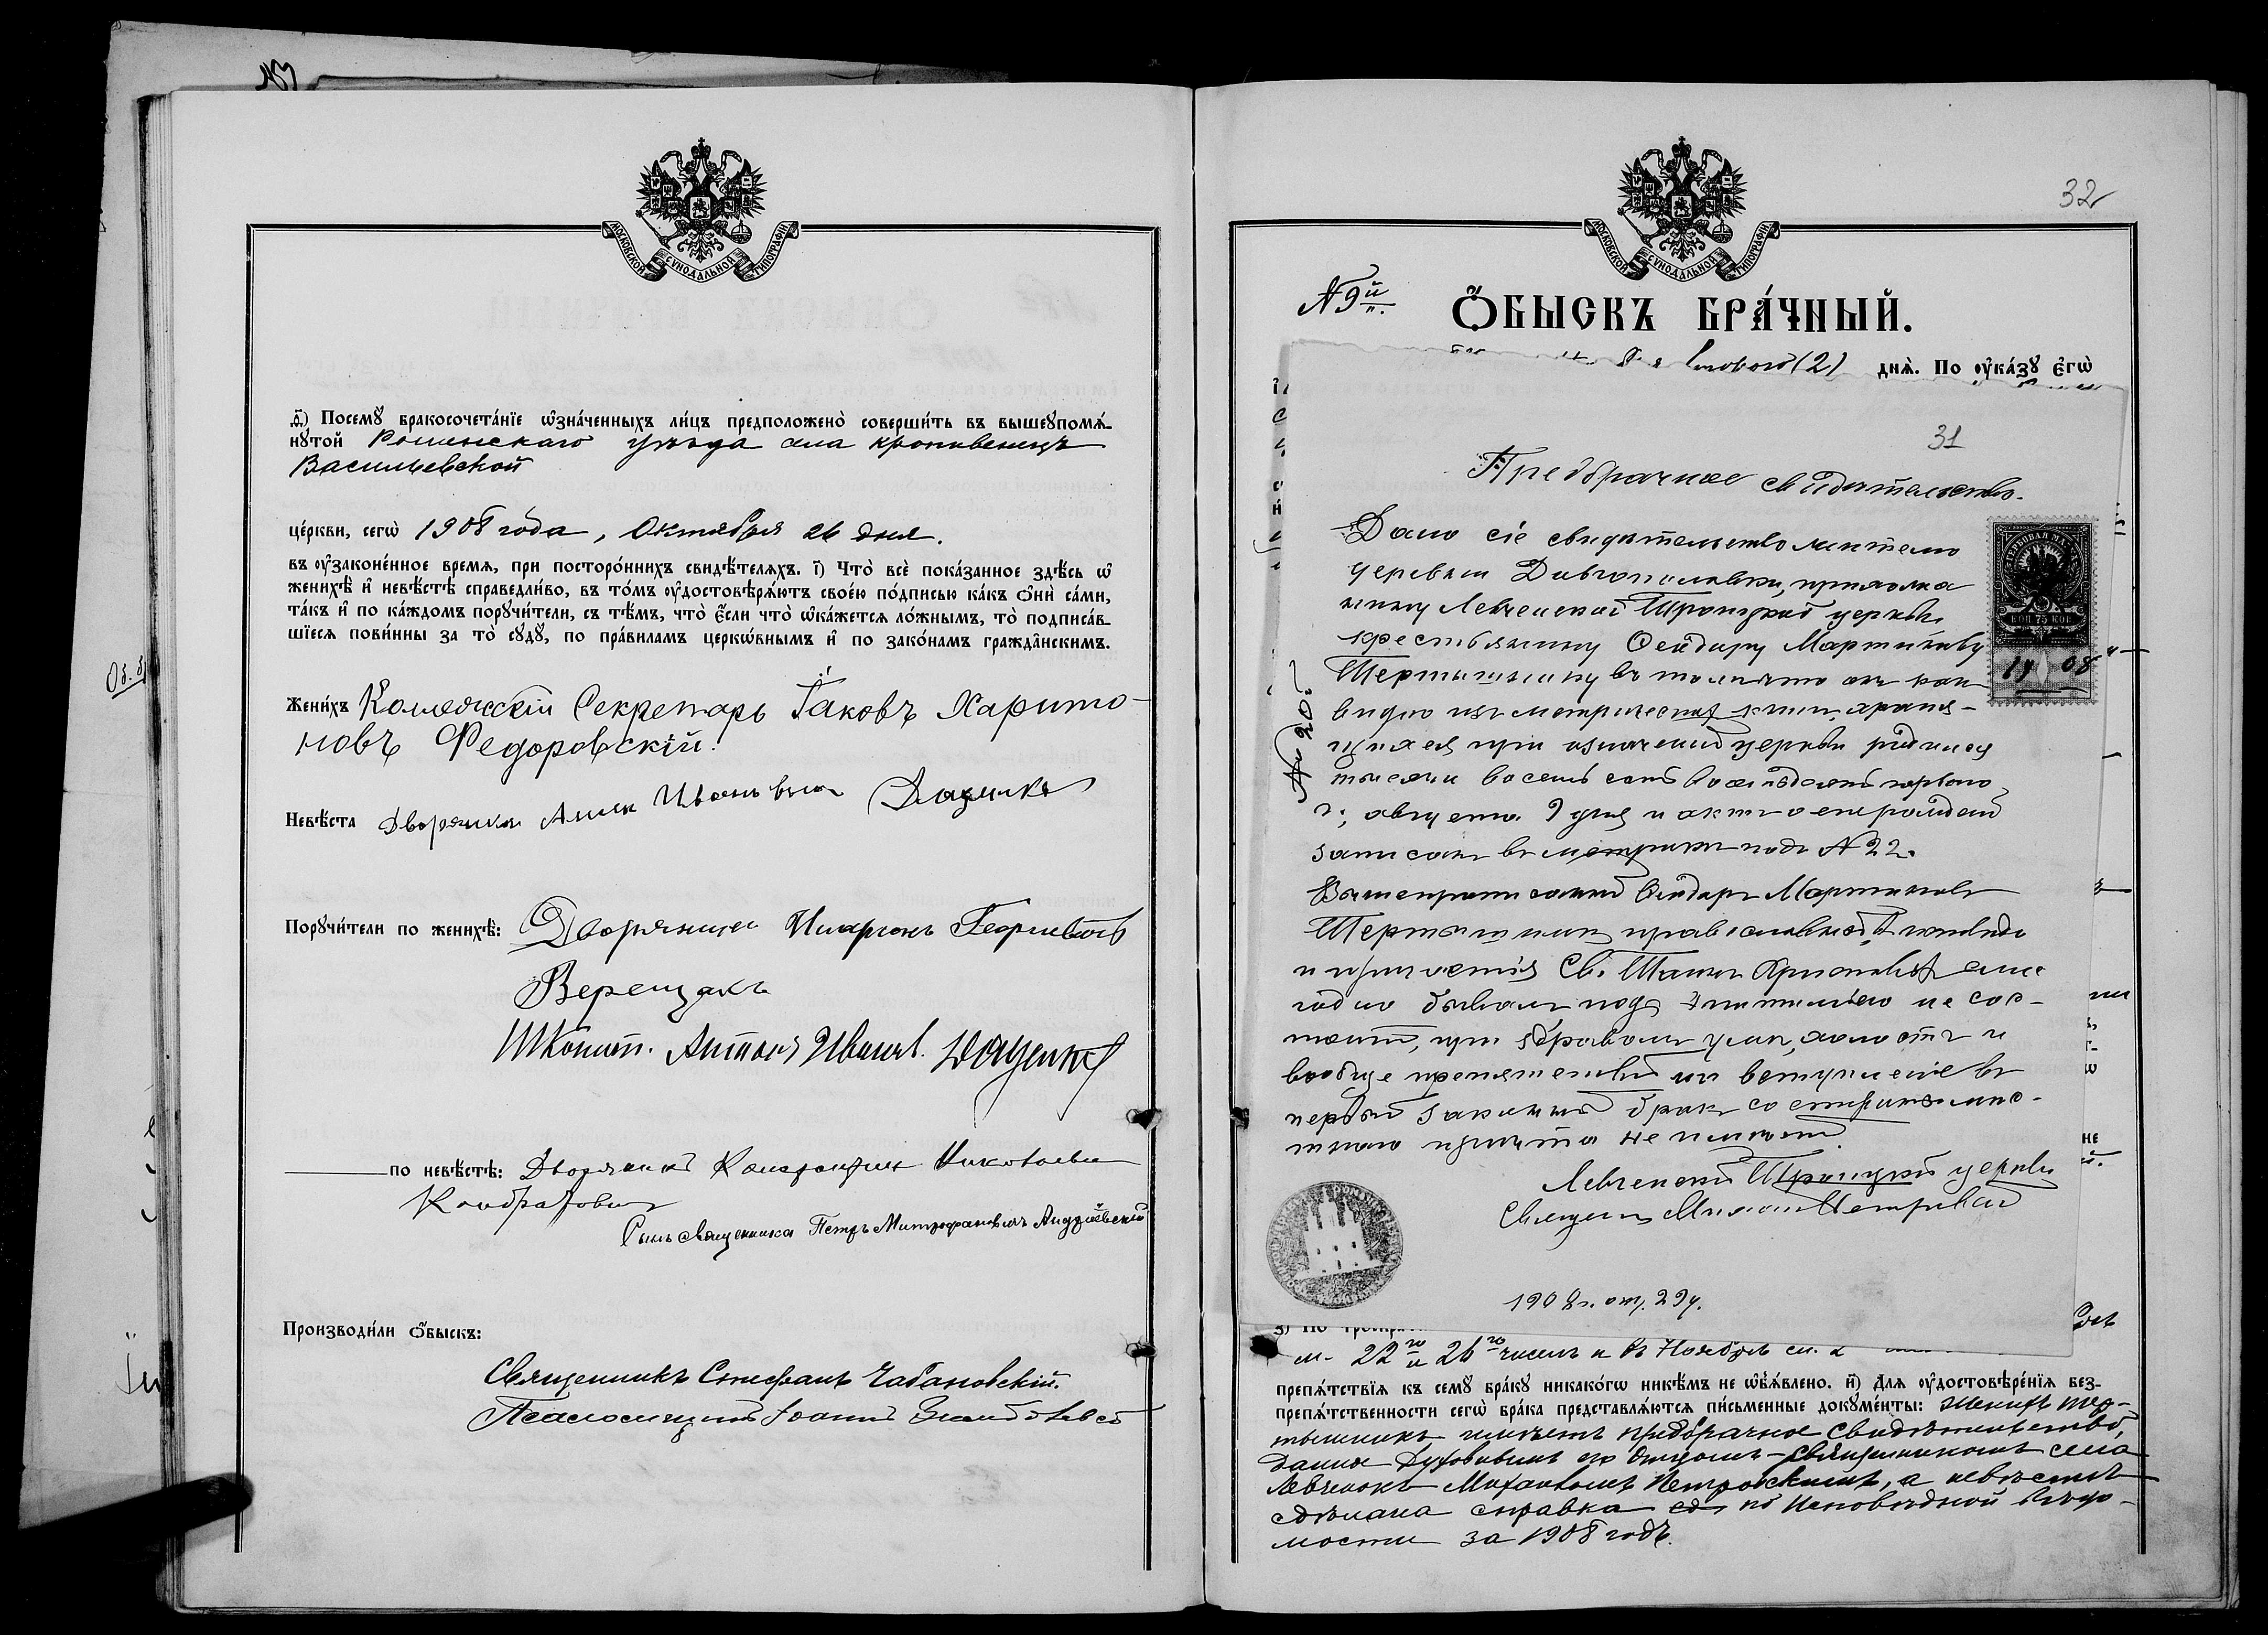 МОСКОВСКОЙ СУНОДАЛЬНОЙ ТИПОГРАФІИ
д҃) Посемꙋ бракосочета́нїе ѡ҆зна́ченныхъ ли́цъ предположено̀ соверши́ть въ вышеꙋпомѧ́-
нꙋтой Роменскаго уѣзда села Кропивенецъ
Васильевской
це́ркви, сегѡ̀ 1908 года, Октября 26 дня.
въ ᲂу҆законе́нное время, при посторо́ннихъ свидѣ́телѧхъ. і҃) Что̀ всѐ пока́занное здѣ́сь ѡ҆
женихѣ̀ и҆ невѣ́стѣ справедли́во, въ то́мъ ᲂу҆достовѣрѧ́ютъ свое́ю по́дписью ка́къ ѻ҆нѝ са́ми,
та́къ и҆ по ка́ждомъ порꙋчи́тели, съ тѣ́мъ, что̀ є҆́сли что̀ ѡ҆ка́жется ло́жнымъ, то̀ подписа́в-
шїеся пови́нны за то̀ сꙋдꙋ̀, по пра́виламъ церко́внымъ и҆ по зако́намъ гражда̂нскимъ.
Жени́хъ Коллежскій Секретарь Іаковъ Харито-
новъ Федоровскій.
Невѣ́ста Дворянка Анна Ивановна Даценко
Порꙋчи́тели по женихѣ̀: Дворянинъ Иларіонъ Георгіевичъ
Верещакъ
Антонъ Иванов. Доценко
по невѣ́стѣ: Дворянинъ Константинъ Николаевичъ
Кондратовичъ
Сынъ священника Петръ Митрофановичъ Андріевскій
Производи́ли ѻ҆́быскъ:
Священникъ Стефанъ Чабановскій.
Псаломщикъ Іоаннъ
32
МОСКОВСКОЙ СУНОДАЛЬНОЙ ТИПОГРАФІИ
№ 9й
Ѻ҆́БЫСКЪ БРА́ЧНЫЙ.
второго (2) днѧ̀. По ᲂу҆ка́зꙋ є҆гѡ̀
31
Предбрачное свидѣтельство.
Дано сіе свидѣтельство жителю
деревни Довгополовки, прихожа
нину Левченской Троицкой церкви
крестьянину Феодору Мартинову
Тертышнику въ томъ что онъ какъ
видно изъ метрическихъ книгъ храня-
щихся при означенной церкви родился
тысяча восемь сотъ восемьдесятъ перваго
г., августа 9 дня и актъ о его рожденіи
записанъ въ метрикѣ подъ № 22.
Вышепрописанный Феодоръ Мартиновъ
Тертышникъ православный, на исповѣди
и причастія Св. Таинъ Христовыхъ еже
годно бывалъ подъ эпитиміею не сос-
тоитъ, при здравомъ умѣ, холостъ и
вообще препятствій на вступленіе въ
первый законный бракъ со стороны мѣс-
тнаго причта не имѣетъ.
Левченской Троицкой церкви
Священникъ Михаилъ Петровскій
1908 г. окт. 29 д.
№ 20.
ГЕРБОВАЯ МАРКА
КОП 75 КОП
19 08
22го и 26го чиселъ и въ Ноябрѣ см. 2
препѧ́тствїѧ къ семꙋ̀ бра́кꙋ никако́гѡ никѣ́мъ не ѡ҆б̾ѧ́влено. и҃) Длѧ ᲂу҆достовѣре́нїѧ без-
препѧ́тственности сегѡ̀ бра́ка представлѧ́ются пи́сьменные докꙋме́нты: Женихъ Тер-
тышникъ имѣетъ предбрачное свидѣтельство,
данное Духовнымъ его Отцомъ – священникомъ села
Левченокъ Михаиломъ Петровскимъ, а невѣстѣ
сдѣлана справка по Исповѣдной вѣдо-
мости за 1908 годъ.